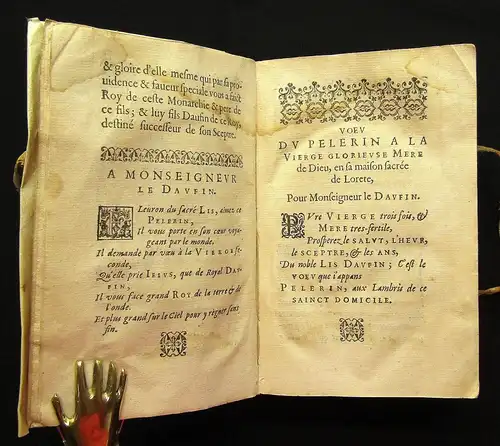 & gloire d'elle mesme qui par sa pro
uidence & faueur speciale vous a faict
Roy de ceste Monarchie & pere de
ce fils; & luy fils Daufin de ce Roy,
destiné successeur de son Sceptre.
A MONSEIGNEVR
LE DAVFIN.
FLeuron du sacré LIS, aimez ce
PELERIN,
Il vous porte en son cœur voya-
geant par le monde.
Il demande par vœu à la VIERGE fe-
conde,
Qu'elle prie IESVS, que de Royal DAV-
FIN,
Il vous face grand ROY de la terre & de
l'onde.
Et plus grand sur le Ciel pour y regner sans
fin.
VOEV
DV PELERIN A LA
VIERGE GLORIEVSE MERE
de Dieu, en sa maison sacrée
de Lorete,
Pour Monseigneur le DAVFIN.
PVre VIERGE trois fois, &
MERE tres-fertile,
Prosperez le SALVT, L'HEVR,
le SCEPTRE, & les ANS,
Du noble LIS DAVFIN; C'est le
VOEV que i'appans
PELERIN, aux Lambris de ce
SAINCT DOMICILE.